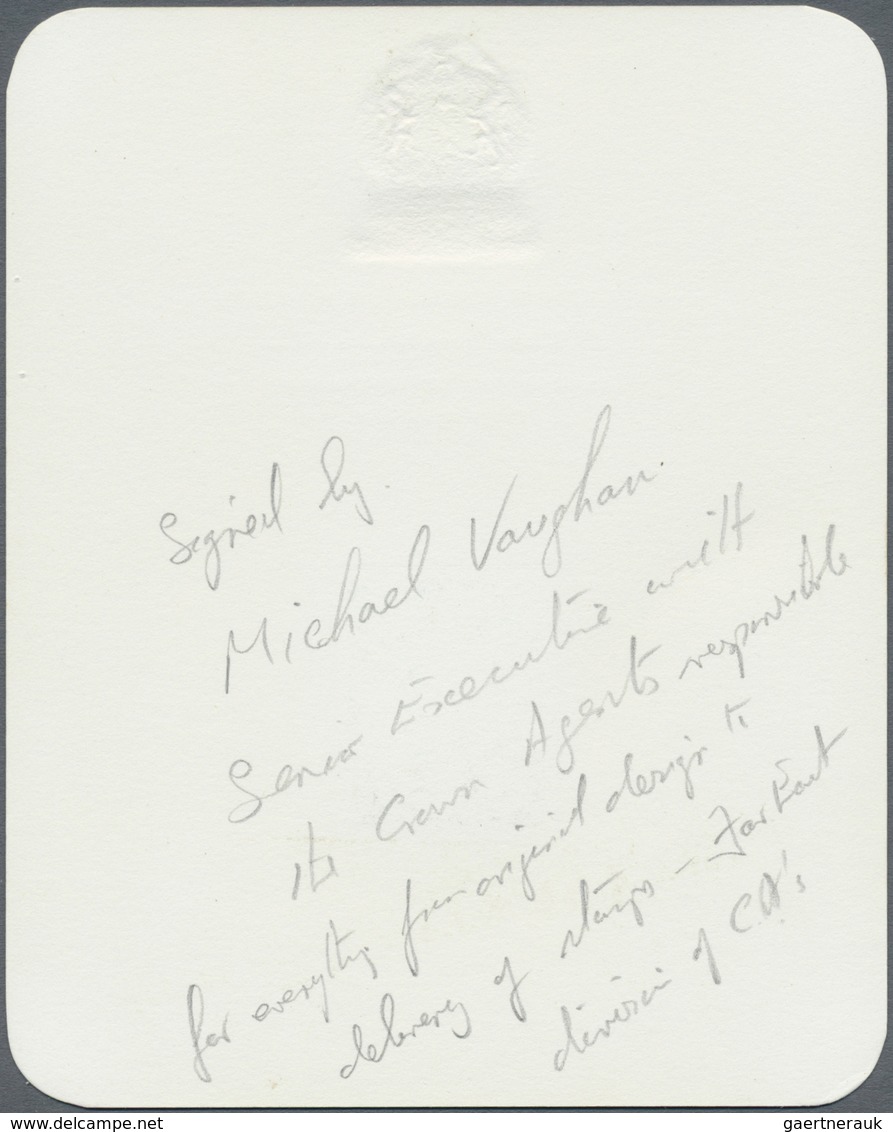 Signed by.
Michael Vaughan.
Senior Executive with
the Crown Agents responsible
for everything from original design to
delivery of stamps – Far East
division of C.A's
delcampe.com
gaertnerauk